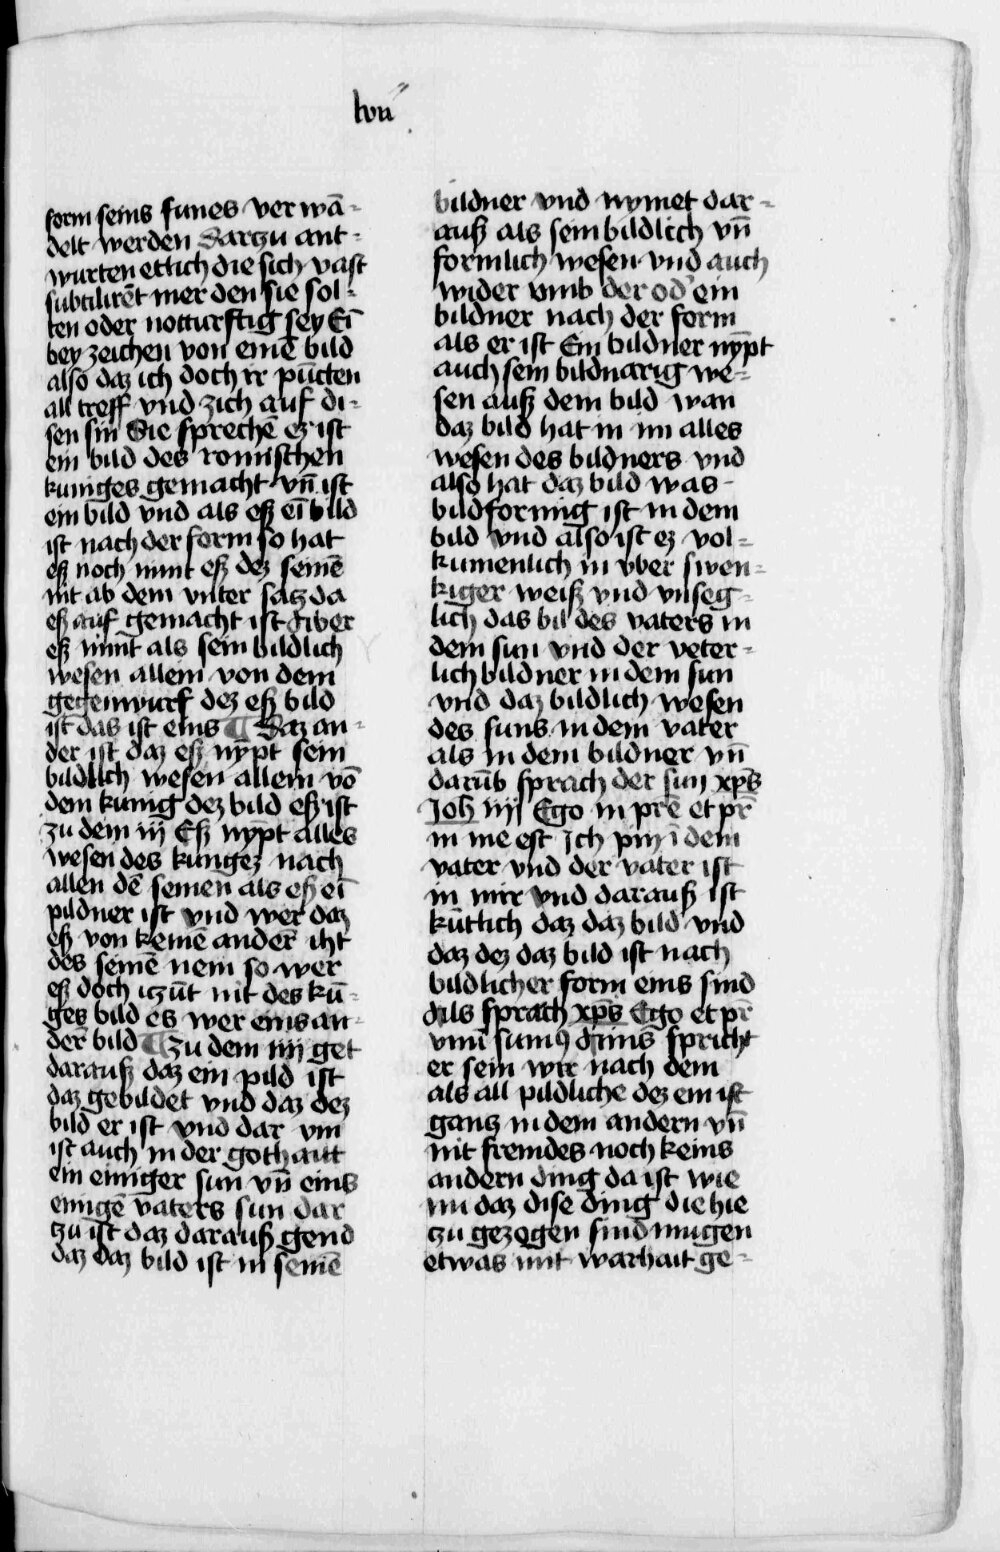 lvii
form seins sunes ver wā-
delt werden Darzu ant-
wurten ettlich die sich vast
subtilirēt mer den sie sol-
ten oder notturftig sey Eī
bey zeichen von einē bild
also daz ich doch ir pūcten
all treff vnd zich auf di-
sen sin Sie sprechē ez ist
ein bild des romischen
kuniges gemacht vn̄ ist
ein bild vnd als eß eī bild
ist nach der form so hat
eß noch nimt eß dez seinē
nit ab dem vnter satz da
eß auf gemacht ist Aber
eß nimt als sein bildlich
wesen allein von dem
gegenwurf dez eß bild
ist das ist eins ¶ Daz an-
der ist daz eß nȳpt sein
bildlich wesen allein vō
dem kunig dez bild eß ist
zu dem iij Eß nȳpt alles
wesen des kungez nach
allen dē seinen als eß eī
pildner ist vnd wer daz
eß von keinē anderē iht
des seinē nem so wer
eß doch iczūt nit des kū-
ges bild es wer eins an-
der bild ¶ Zu dem iiij get
darauß daz ein pild ist
daz gebildet vnd daz dez
bild er ist vnd dar vm
ist auch in der gothait
ein einiger sun vn̄ eins
einigē vaters sun dar
zu ist daz darauß gend
daz daz bild ist in seinē
bildner vnd nymet dar-
auß als sein bildlich vn̄
formlich wesen vnd auch
wider vmb der od' ein
bildner nach der form
als er ist Ein bildner nȳpt
auch sein bildnarig we-
sen auß dem bild wan
daz bild hat in im alles
wesen des bildners vnd
also hat daz bild was
bildforming ist in dem
bild vnd also ist ez vol-
kumenlich in vber swen-
kiger weiß vnd vnseg-
lich das bil des vaters in
dem sun vnd der veter-
lich bildner in dem sun
vnd daz bildlich wesen
des suns in dem vater
als in dem bildner vn̄
darūb sprach der sun xp̄s
Joh iiij Ego in prē et pr̄
in me est Jch pin ī dem
vater vnd der vater ist
in mir vnd darauß ist
kūtlich daz daz bild vnd
daz dez daz bild ist nach
bildlicher form eins sind
Als sprach xp̄s Ego et pr̄
vnū sumꝯ Ains spricht
er sein wir nach dem
als all pildliche dez ein ist
gantz in dem andern vn̄
nit fremdes noch keins
andern ding da ist wie
nu daz dise ding die hie
zu gezogen sind mugen
etwas mit warhait ge-